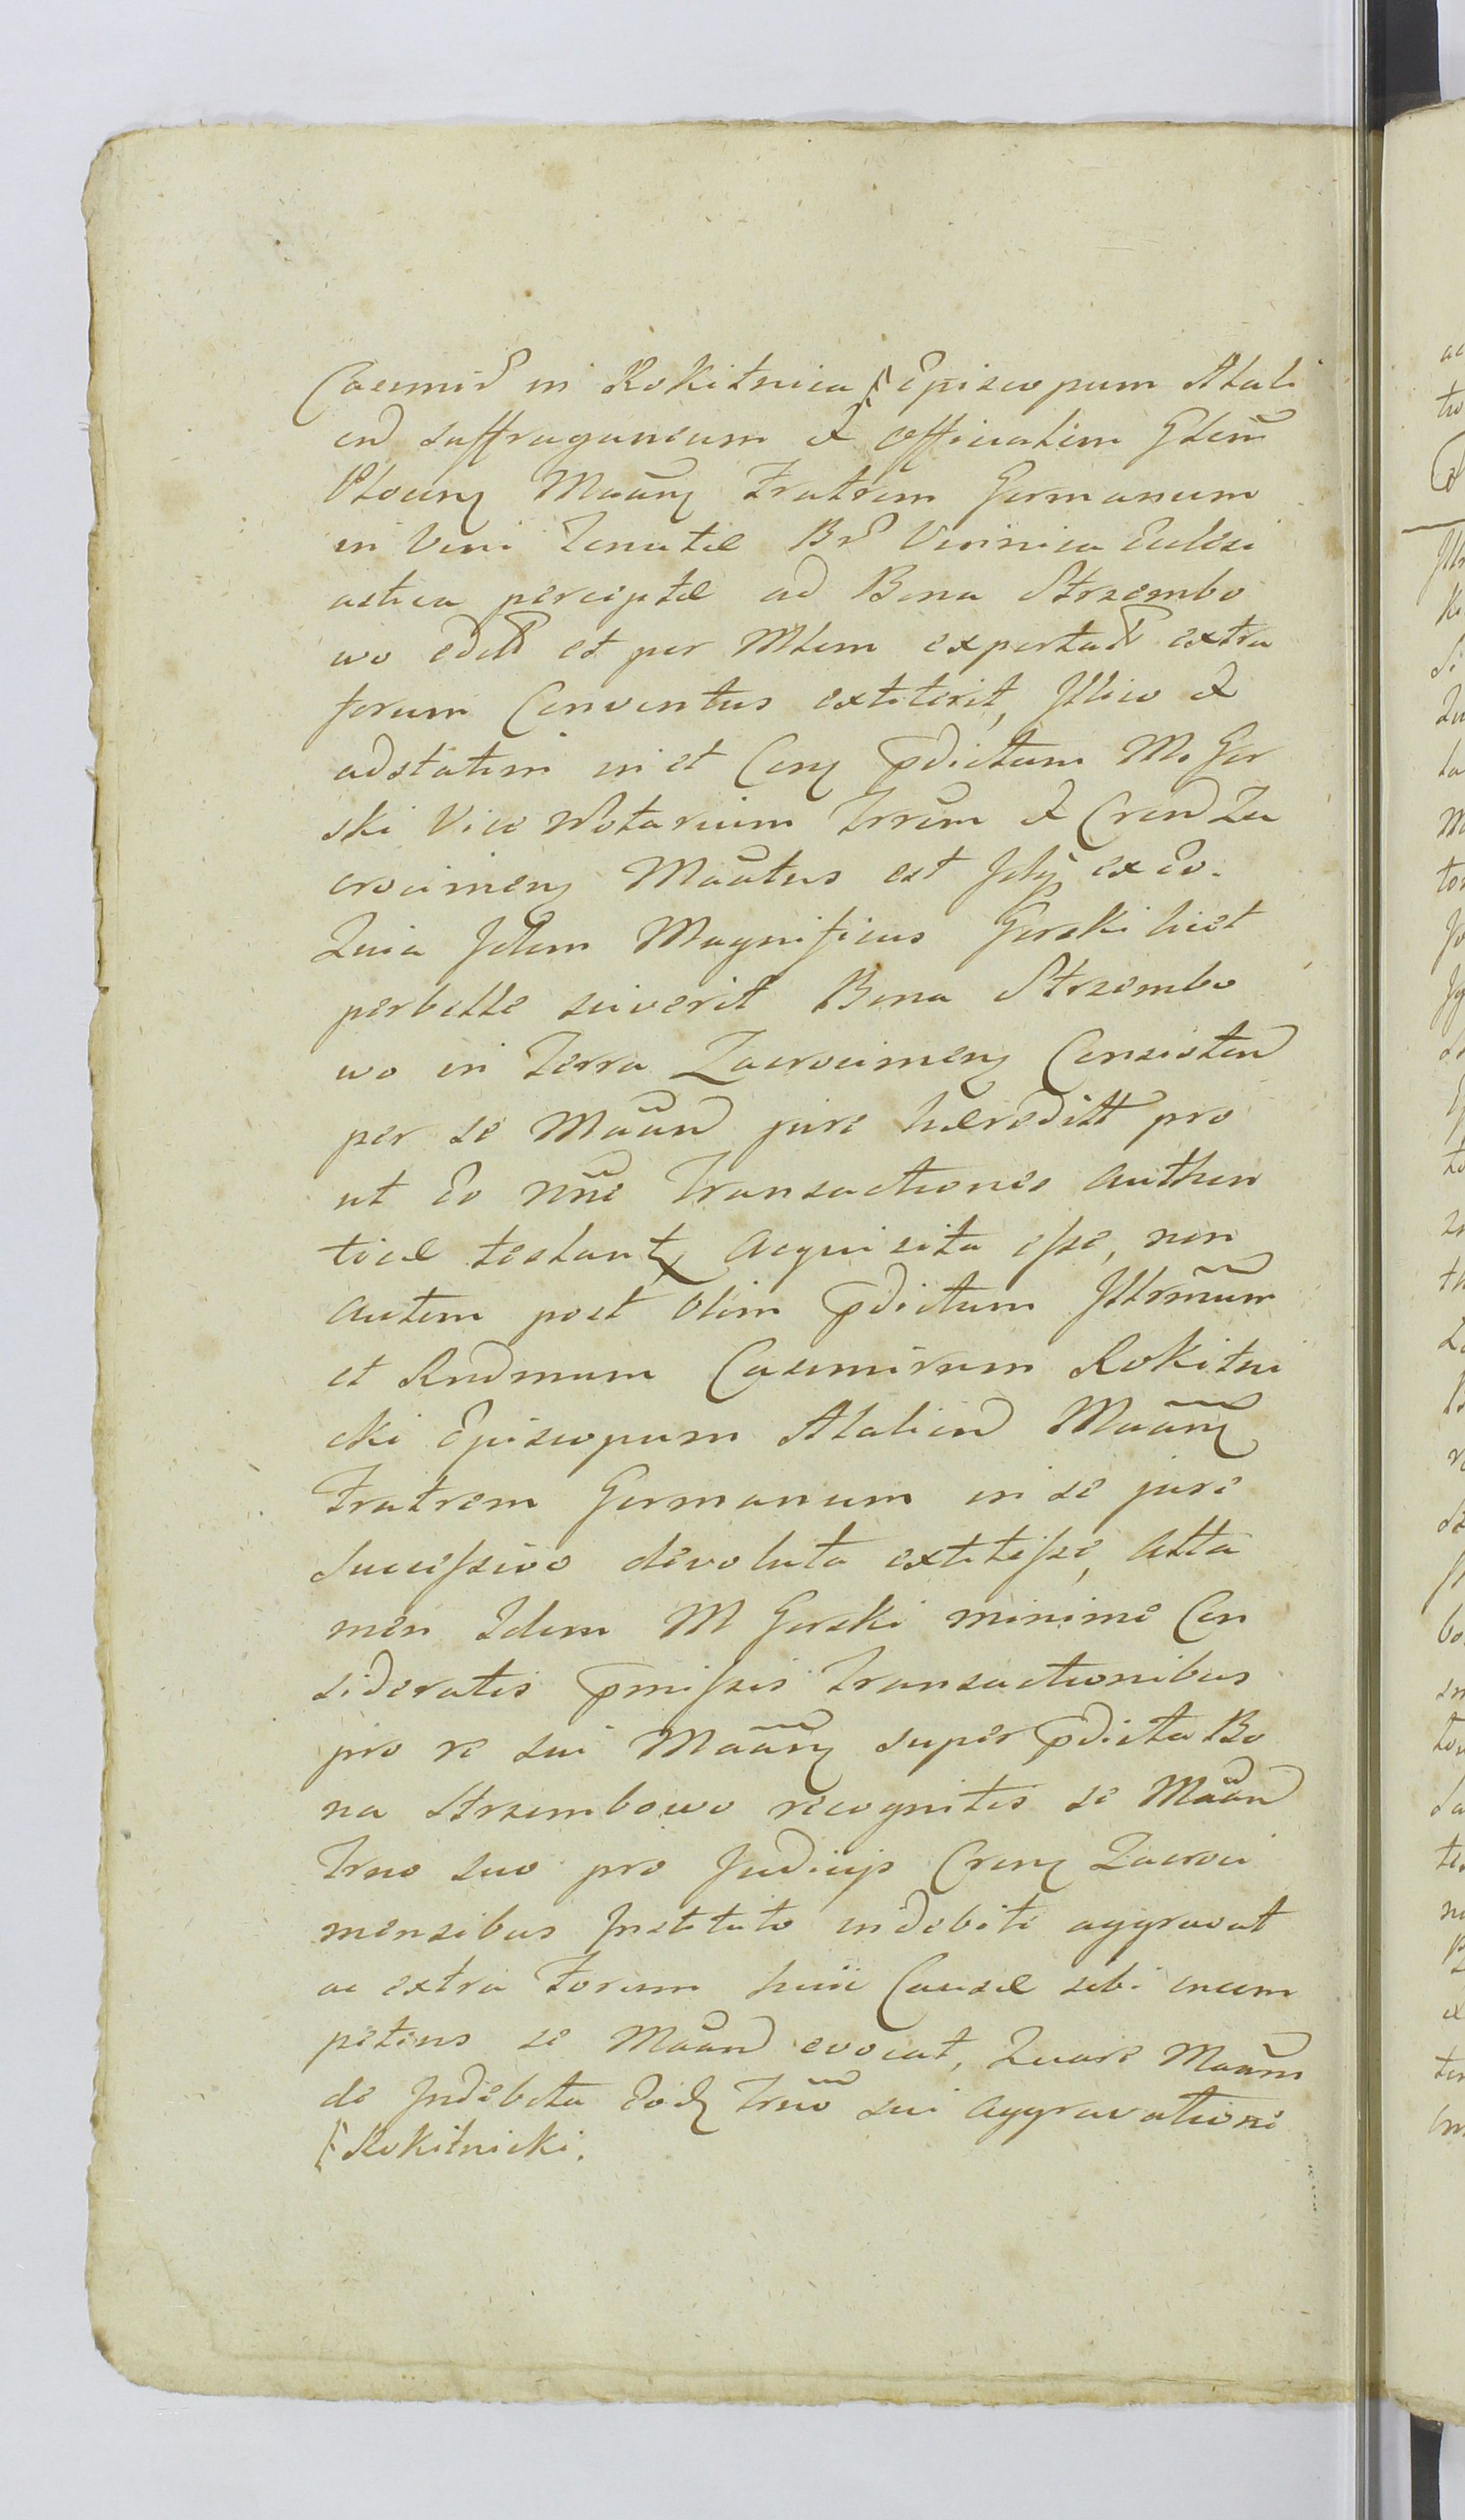 Casimir in Rokitnica Episcopum Atali
en Suffraganeum et Officialem Glem
Plocens Maans Fratrem Germanum
in Vini Ecclesi
astica perceptæ ad Bona Strzembo
wo et per Mtem extra
forum Conventus extiterit, Illico et
adstatim in et Cons pdictum M. Gor
ski Vice Notarium Trrem et Cren Za
crocimens Maatus est
Quia Idem Magnificus Gorski licet
perbelle sciverit Bona Strzembo
wo in Terra Zacrocimens Consisten
per se Maan jure hæreditt pro
ut Eo nne Transactiones Authen
ticæ testantr Acquisita esse, non
autem post olim pdictum Illrmum
et Rndmum Casimirum Rokitni
cki Episcopum Atalien Maans
Fratrem Germanum in se jure
Successivo devoluta extitisse, Atta
men Idem M Gorski minime Con
sideratis pmissis Transactionibus
pro re sui Maans super pdicta Bo
na Strzembowo recognitis se Maan
Trno suo pro Judicijs Crens Zacroci
mensibus Instituto indebite aggravat
ac extra Forum huic Causæ sibi incom
petens se Maan evocat, Quare Maans
de Indebita Sui Aggravatione
Rokitnicki.